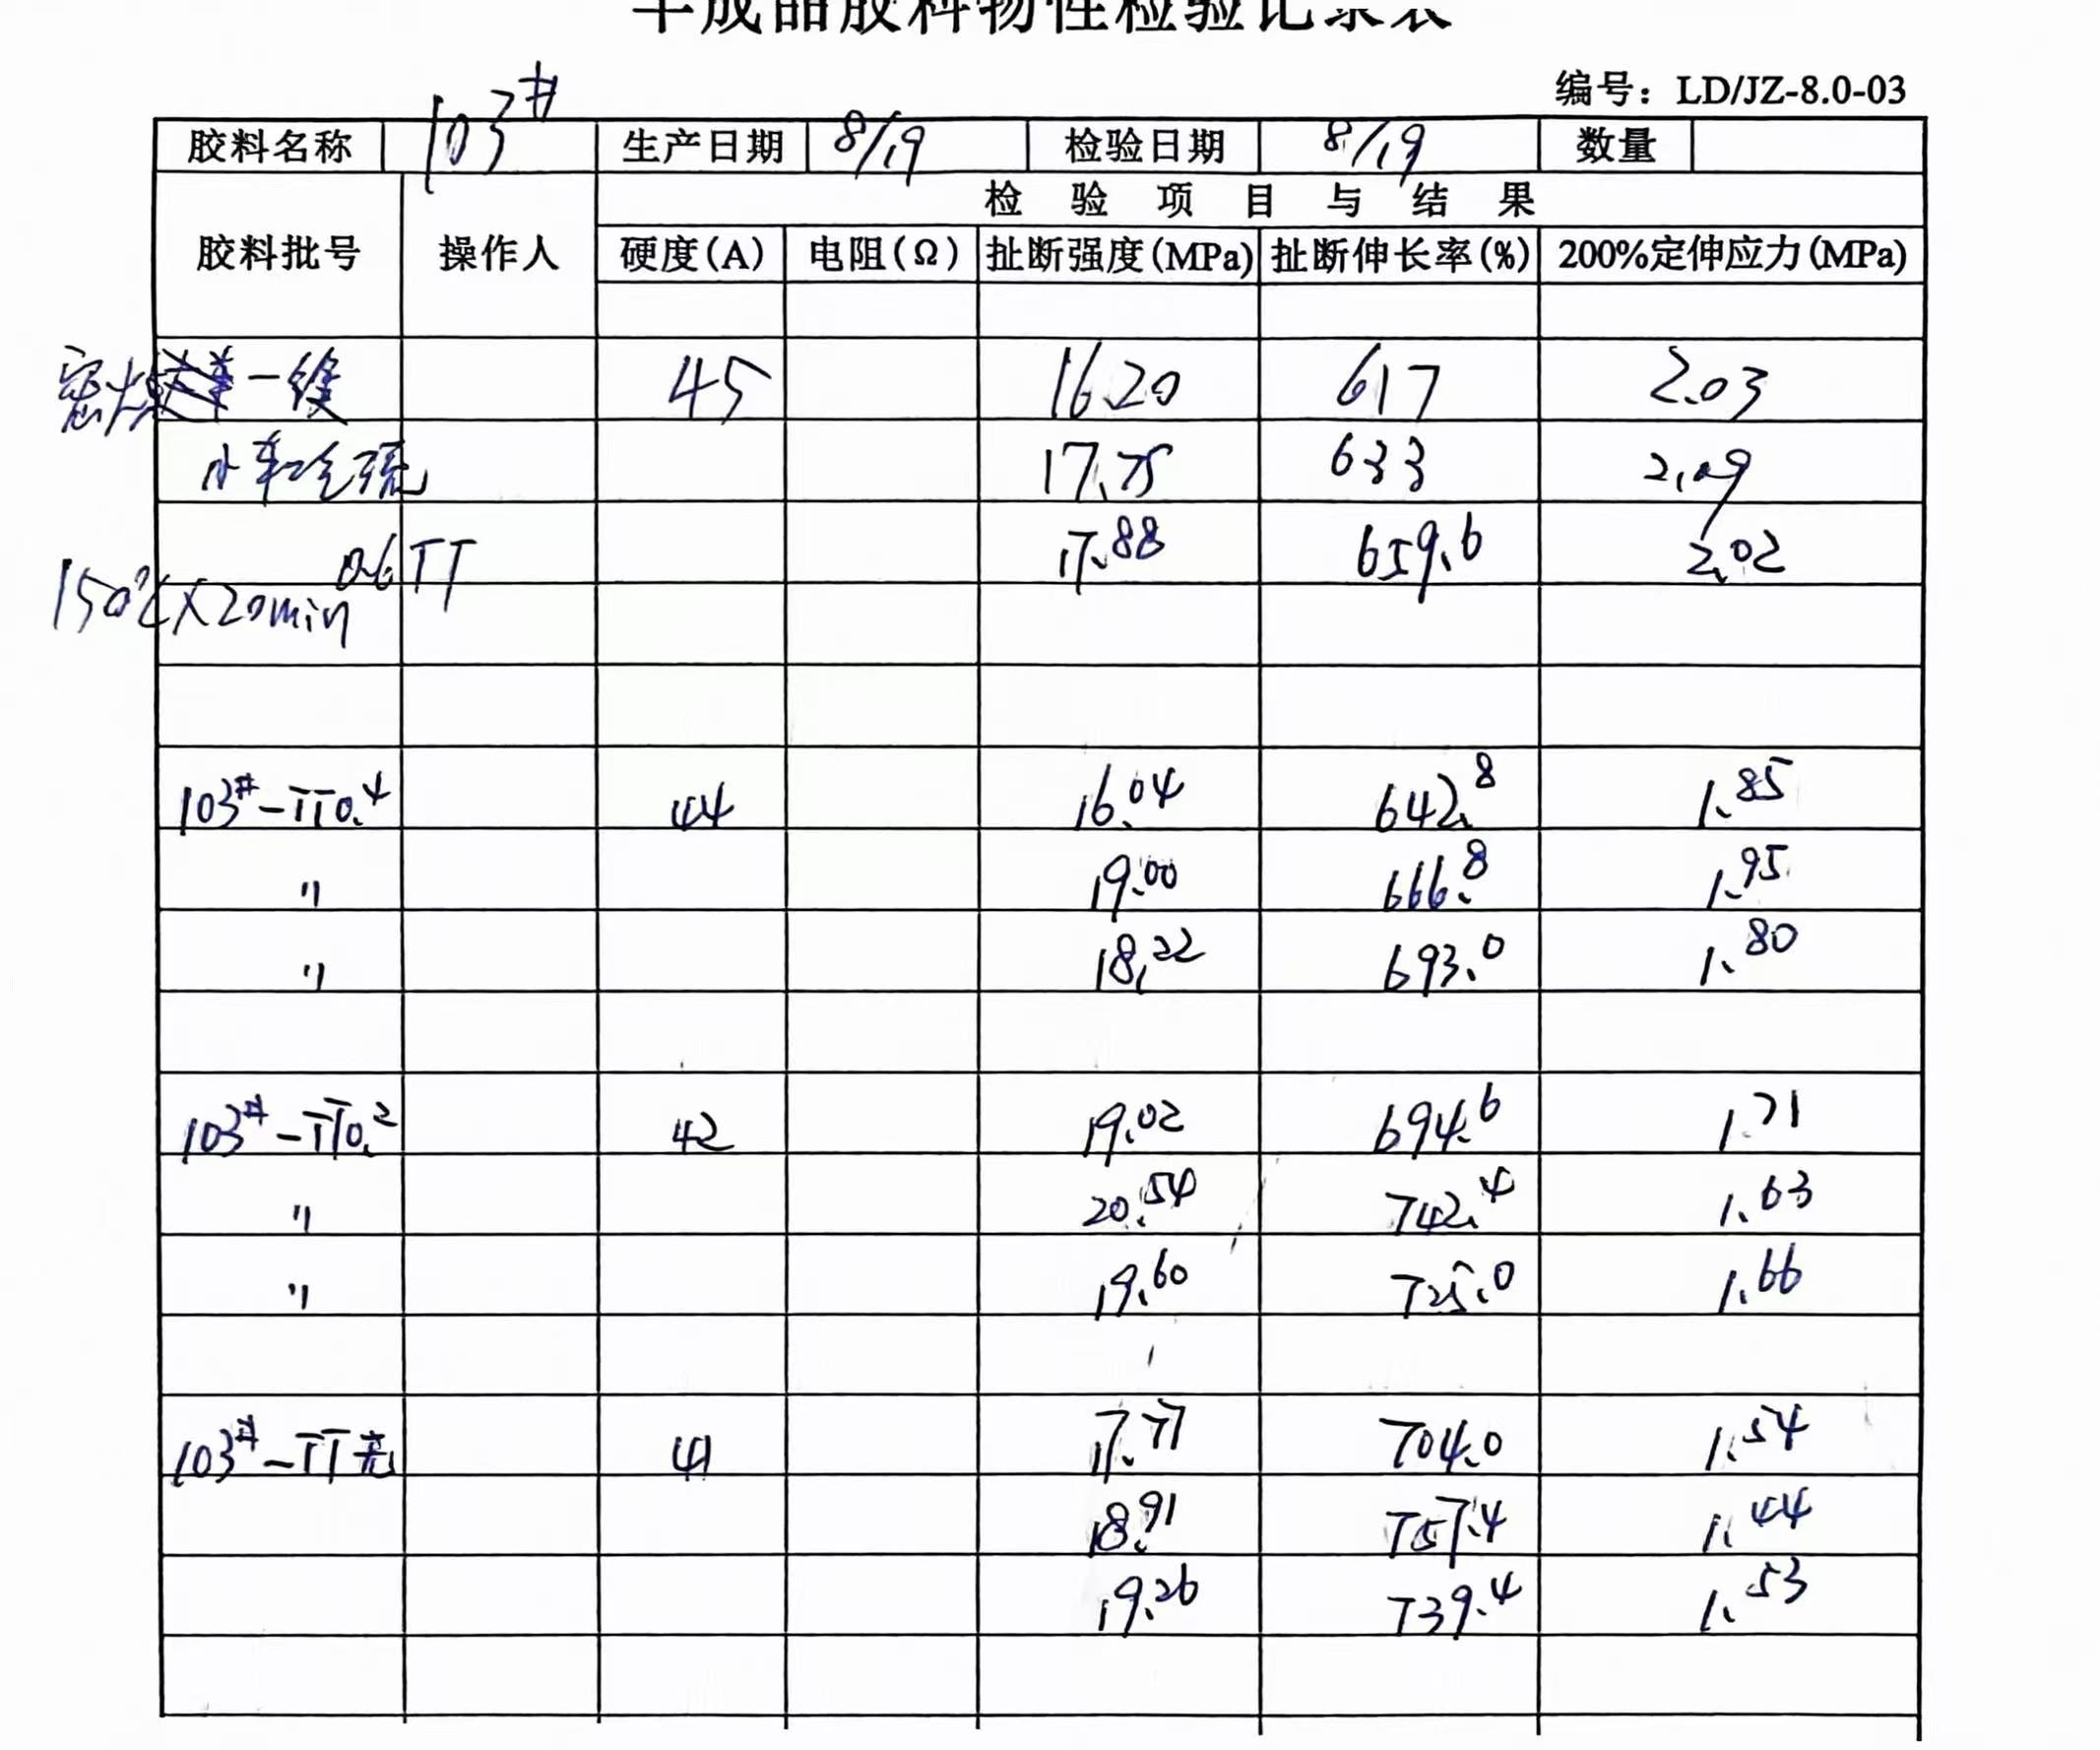 半成品胶料物性检验记录表
编号：LD/JZ-8.0-03
胶料名称 103# 生产日期 8/19 检验日期 8/19 数量
检 验 项 目 与 结 果
胶料批号 操作人 硬度(A) 电阻(Ω) 扯断强度(MPa) 扯断伸长率(%) 200%定伸应力(MPa)
密炼 一段 45 16.20 617 2.03
小车 17.75 633 2.09
0.6 TT 17.88 659.6 2.02
150℃×20min
103#-TT0.4 44 16.04 642.8 1.85
" 19.00 666.8 1.95
" 18.22 693.0 1.80
103#-TT0.2 42 19.02 694.6 1.71
" 20.54 742.4 1.63
" 19.60 725.0 1.66
103#-TT无 41 17.77 704.0 1.54
18.91 757.4 1.44
19.26 739.4 1.53